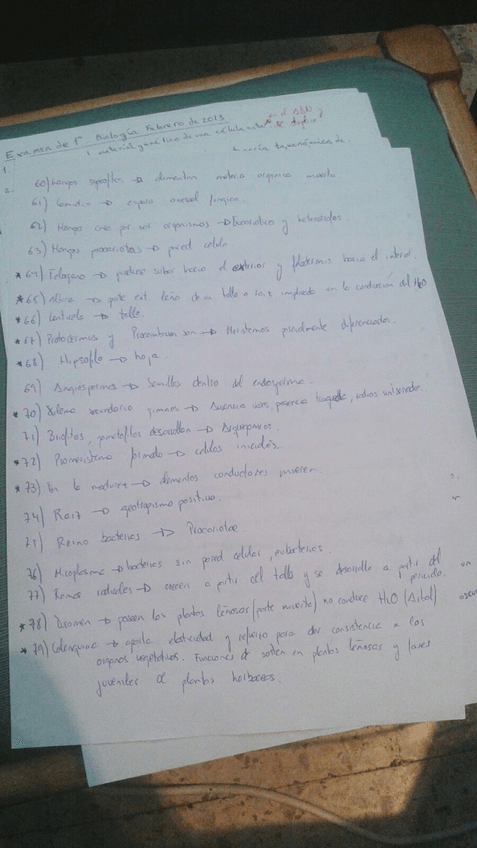 Examen de 1º Biología Febrero de 2013
1.
material genético de una célula
2.
60) Hongos saprofitos → alimentan materia orgánica muerta
61) Conidio → espora asexual fúngica.
62) Hongos por ser organismos → eucariotas y heterótrofos.
63) Hongos procariotas → pared celula
*64) Felógeno → produce súber hacia el exterior y felodermis hacia el interior.
*65) Albura → parte ext. leño de un tallo o raíz implicado en la conducción del H2O
*66) Lenticela → tallo.
*67) Protodermis y Procambium son → Meristemos parcialmente diferenciados.
*68) Hipsofilo → hoja.
69) Angiospermas → Semillas dentro del
*70) Xilema secundario gimnos → Ausencia vasos, presencia traqueidas, radios uniseriados.
71) Briofitos, gametofitos desarrollan → Arquegonios.
*72) Promeristemo formado → celulas iniciales.
*73) En la madurez → elementos conductores mueren.
74) Raíz → geotropismo positivo.
75) Reino bacterias → Procariotae
76) Micoplasma → bacterias sin pared celular, eubacterias.
77) Ramas radiales → crecen a partir del tallo y se desarrolla a partir del
*78) Duramen → poseen las plantas leñosas (parte muerta) no conduce H2O (Árbol)
*79) Colénquima → aporta elasticidad y refuerzo para dar consistencia a los
órganos vegetativos. Funciones de sostén en plantas leñosas y fases
juveniles de plantas herbáceas.